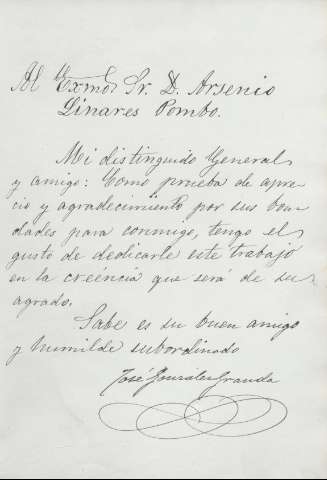 Al Exmo Sr. D. Arsenio
Linares Pombo.
Mi distinguido General
y amigo: Como prueba de apre-
cio y agradecimiento por sus bon-
dades para conmigo, tengo el
gusto de dedicarle este trabajo
en la creéncia que será de su
agrado.
Sabe es su buen amigo
y humilde subordinado
José González Granda